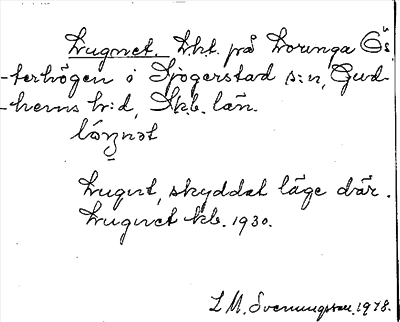 Lugnet. Lht. på Lovunga Ös-
-terhögen i Sjögerstad s:n, Gud-
-hems h:d, Skb. län.
Lugnt, skyddat läge där.
Lugnet kb. 1930.
L M. Svenungsson. 1978.